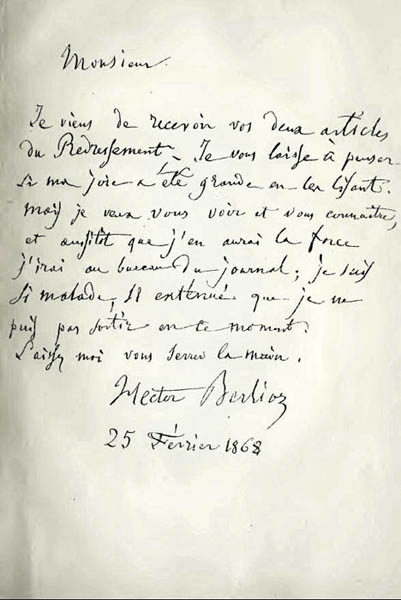 Monsieur.
Je viens de recevoir vos deux articles
du Rédressement. Je vous laisse à penser
si ma joie a été grande en les lisant.
mais je veux vous voir et vous connaitre,
et aussitôt que j'en aurai la force
j'irai au bureau du journal; je suis
si malade, si exténué que je ne
puis pas sortir en ce moment.
Laissez moi vous serrer la main.
Hector Berlioz
25 Février 1868